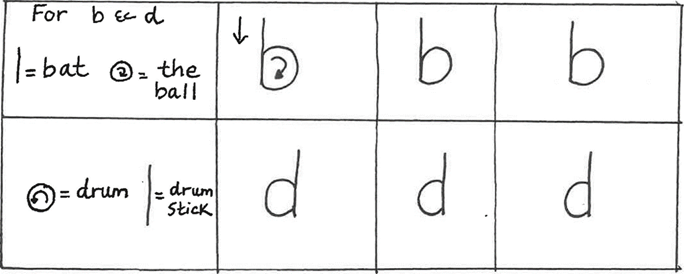 For b & d
| = bat = the
ball
b b b
= drum | = drum
stick
d d d